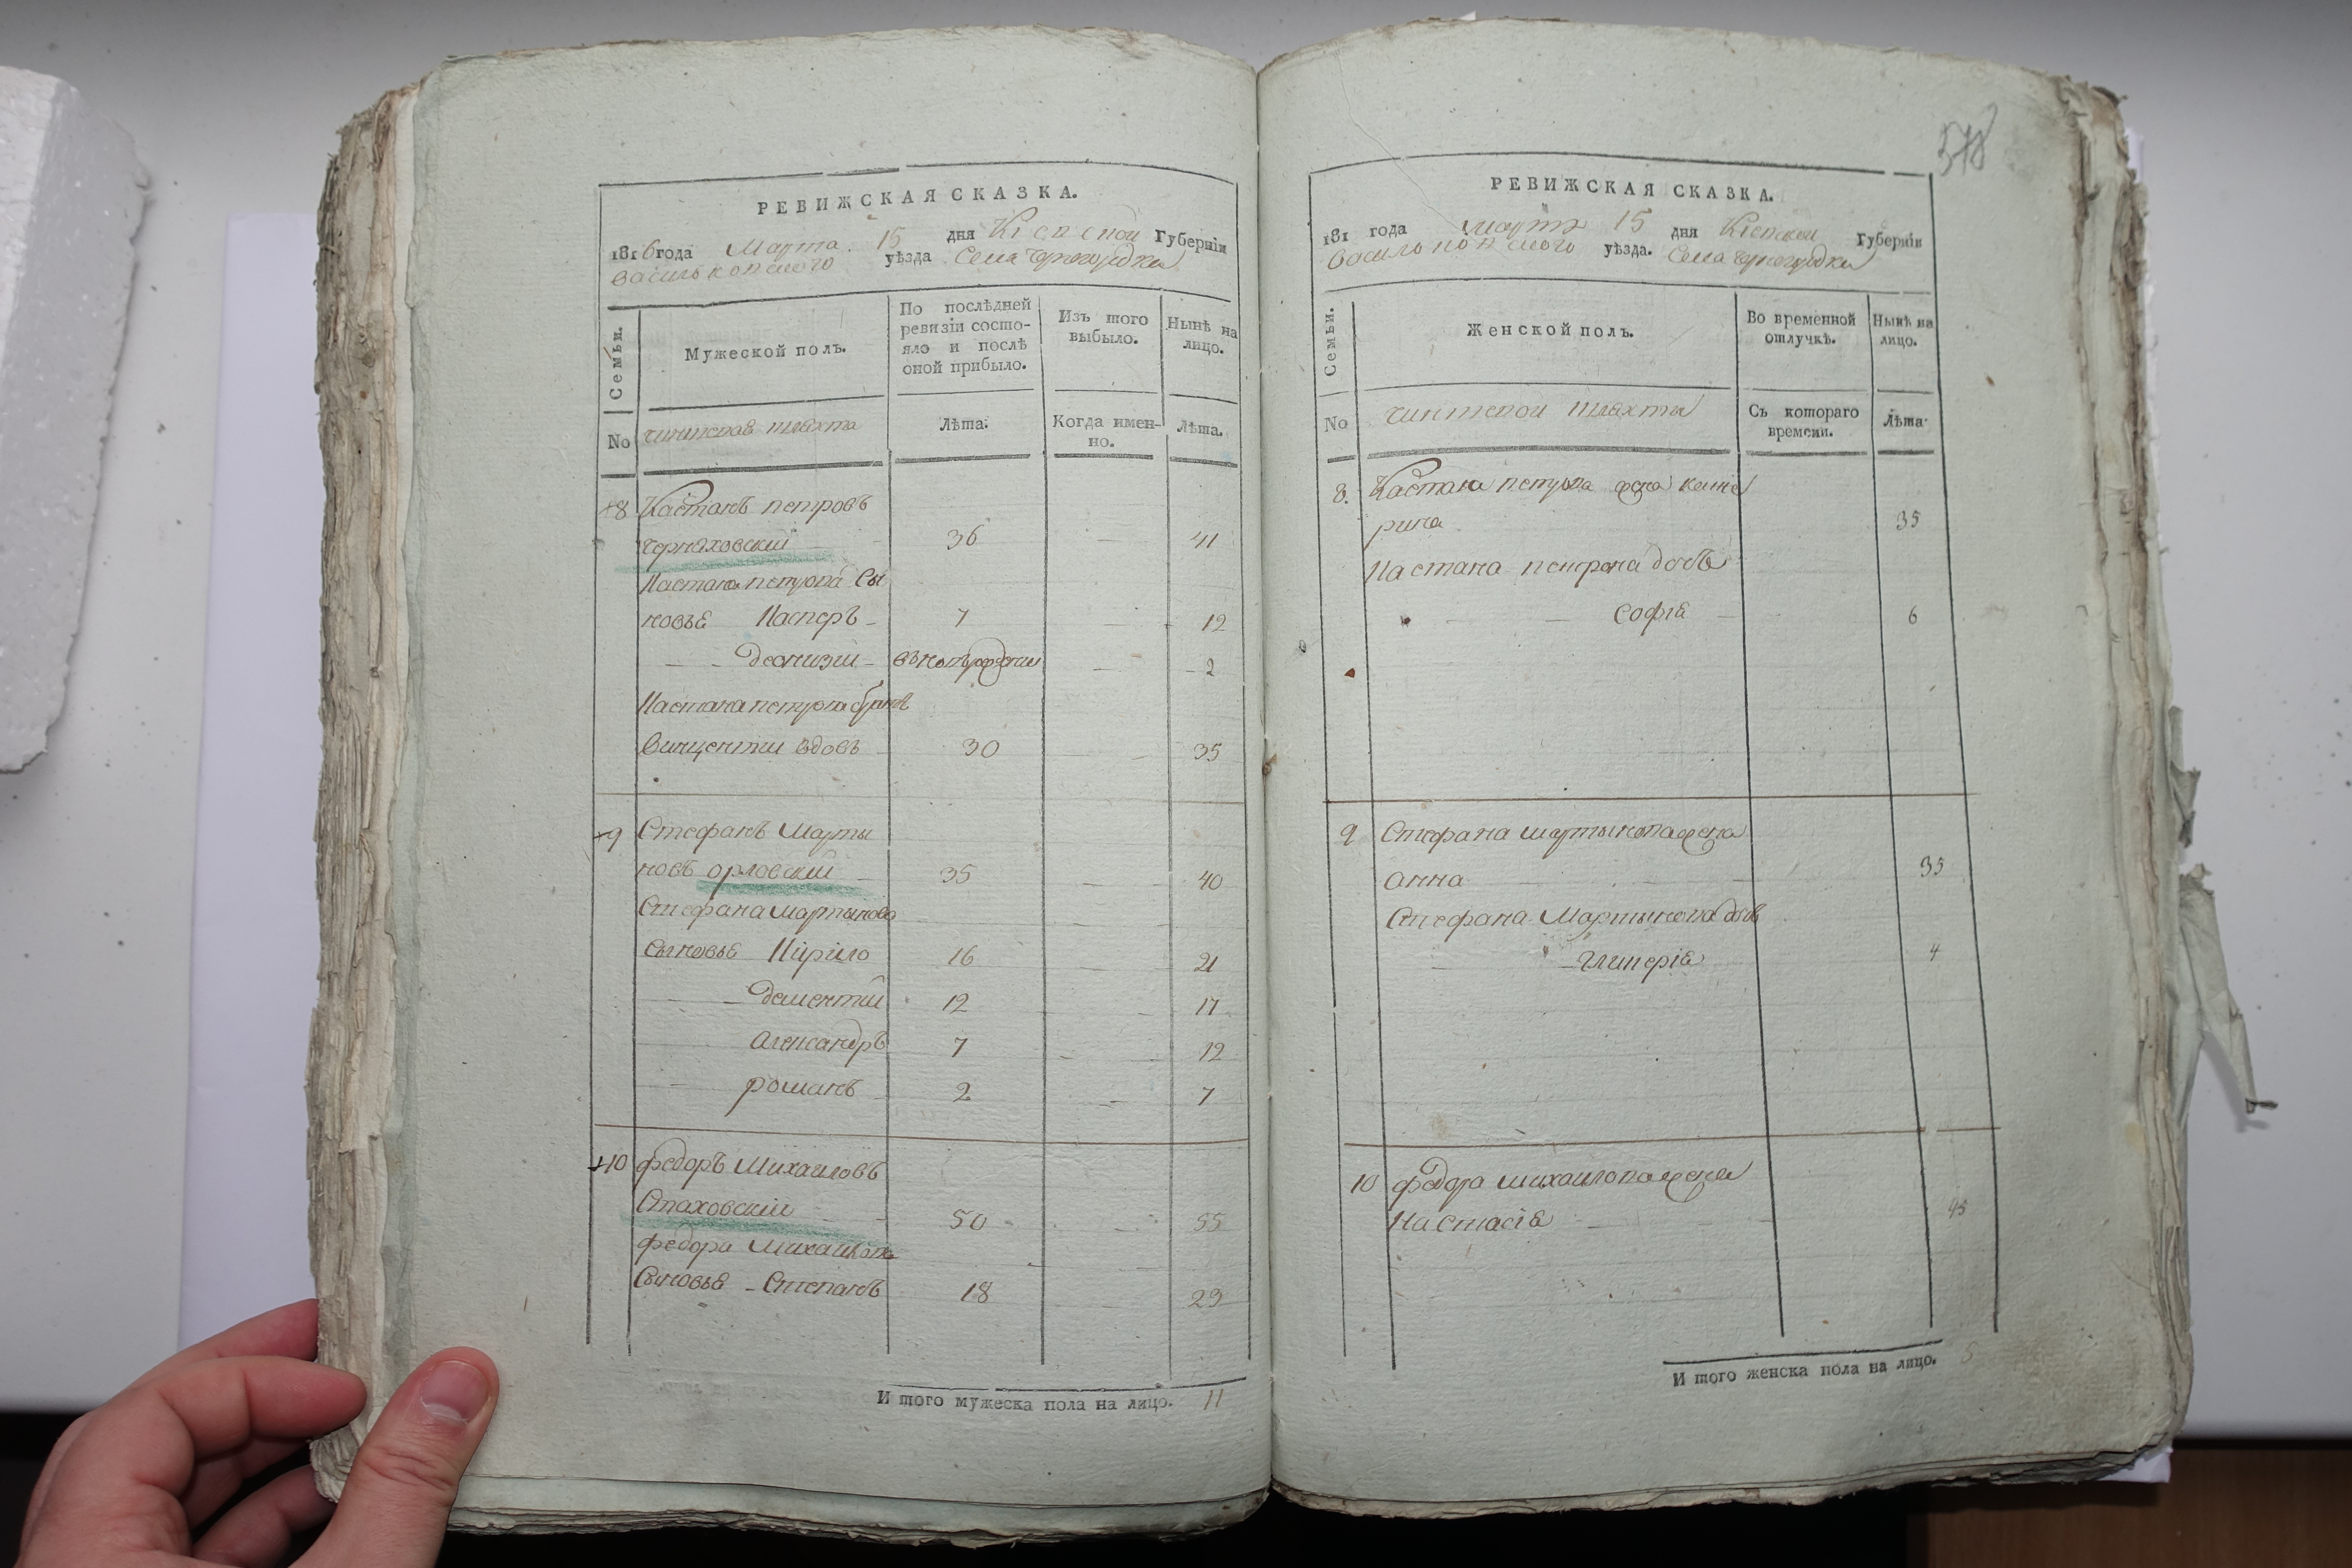 РЕВИЖСКАЯ СКАЗКА.
1816 года Марта 15 дня Кіевской Губерніи
васильковского уѣзда Села Черногородки
Семьи.
Мужеской полъ.
По послѣдней ревизіи состояло и послѣ оной прибыло.
Изъ того выбыло.
Нынѣ на лицо.
No чиншовая шляхта Лѣта. Когда именно. Лѣта.
8 Каэтанъ петровъ
черняховскій 36 — 41
Каэтана петрова Сы
новья Касперъ 7 — 12
Деонизій — 2
Каэтана петрова братъ
Винцентій вдовъ 30 — 35
9 Стефанъ Марты
новъ орловскій 35 — 40
Стефана мартынова
Сыновья Кирило 16 — 21
Дементій 12 — 17
Александръ 7 — 12
романъ 2 — 7
10 федоръ Михаиловъ
Стаховскій 50 — 55
федора Михаилова
Сыновья Степанъ 18 — 23
И того мужеска пола на лицо. 11
578
РЕВИЖСКАЯ СКАЗКА.
181 года марта 15 дня Кіевской Губерніи
васильковского уѣзда. Села черногородки
Семьи.
Женской полъ.
Во временной отлучкѣ.
Нынѣ на лицо.
No чиншовой шляхты Съ котораго времени. Лѣта
8. Каэтана петрова жена кате
рина 35
Каэтана петрова дочь
Софія 6
9 Стефана мартынова жена
анна 35
Стефана Мартынова дочь
Гликерія 4
10 федора михаилова жена
Настасія 45
И того женска пола на лицо. 5